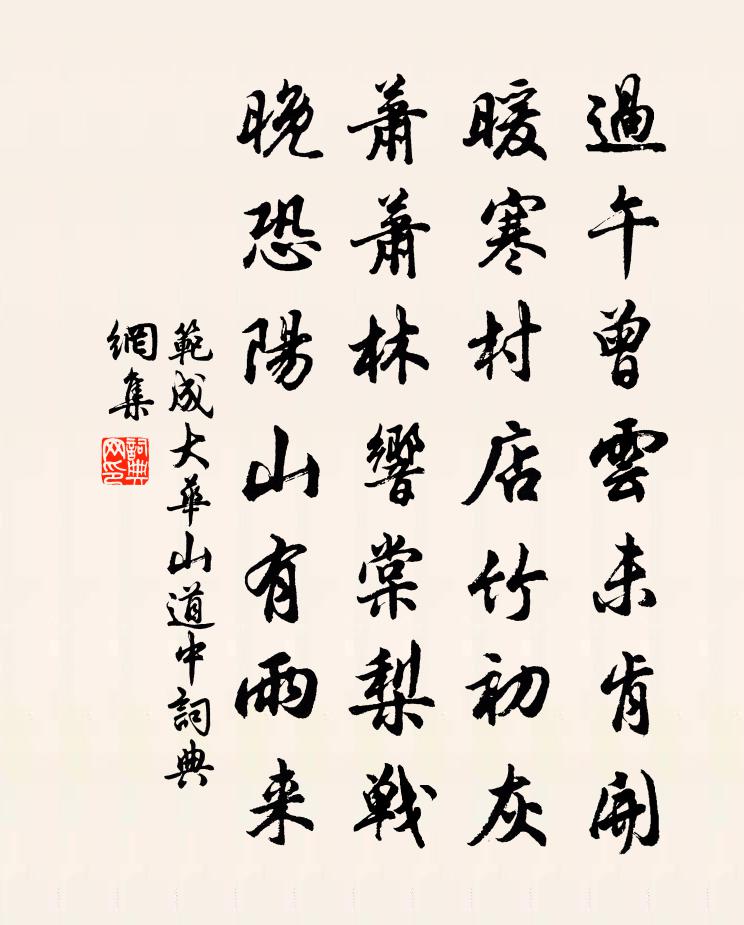 過午曾雲未肯開
暖寒村店竹初灰
蕭蕭林響棠梨戰
晚恐陽山有雨来
範成大華山道中詞典
網集
詞典
网印